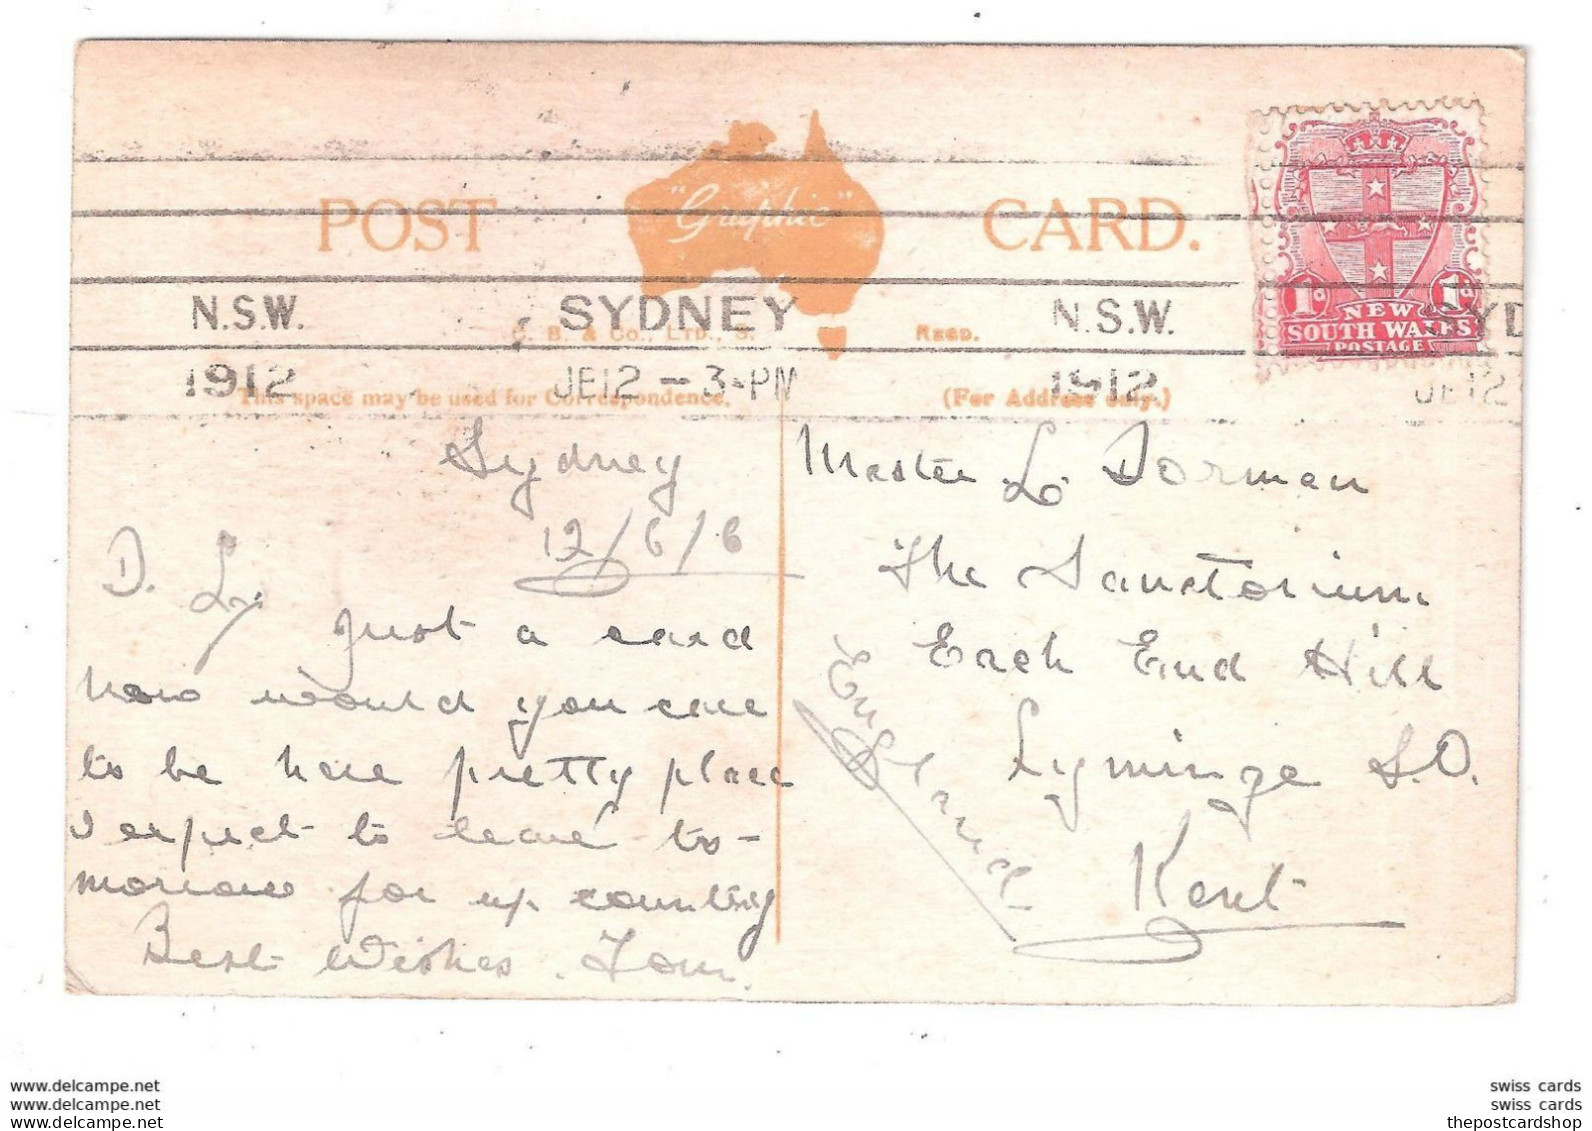 POST "Graphic" CARD.
N.S.W. SYDNEY N.S.W.
1912 JE12 - 3-PM 1912
C. B. & Co., LTD., S. REGD.
This space may be used for Correspondence.
(For Address only.)
1d NEW 1d
SOUTH WALES
POSTAGE
SYD
JE12
Sydney
12/6/
D.
just a card
how would you care
to be here pretty place
I expect to leave to-
morrow for up country
Best Wishes. Tom.
Master L. Dorman
The Sanctorium
Each End Hill
Lyminge S.O.
Kent
England
www.delcampe.net
www.delcampe.net
www.delcampe.net
swiss cards
swiss cards
thepostcardshop